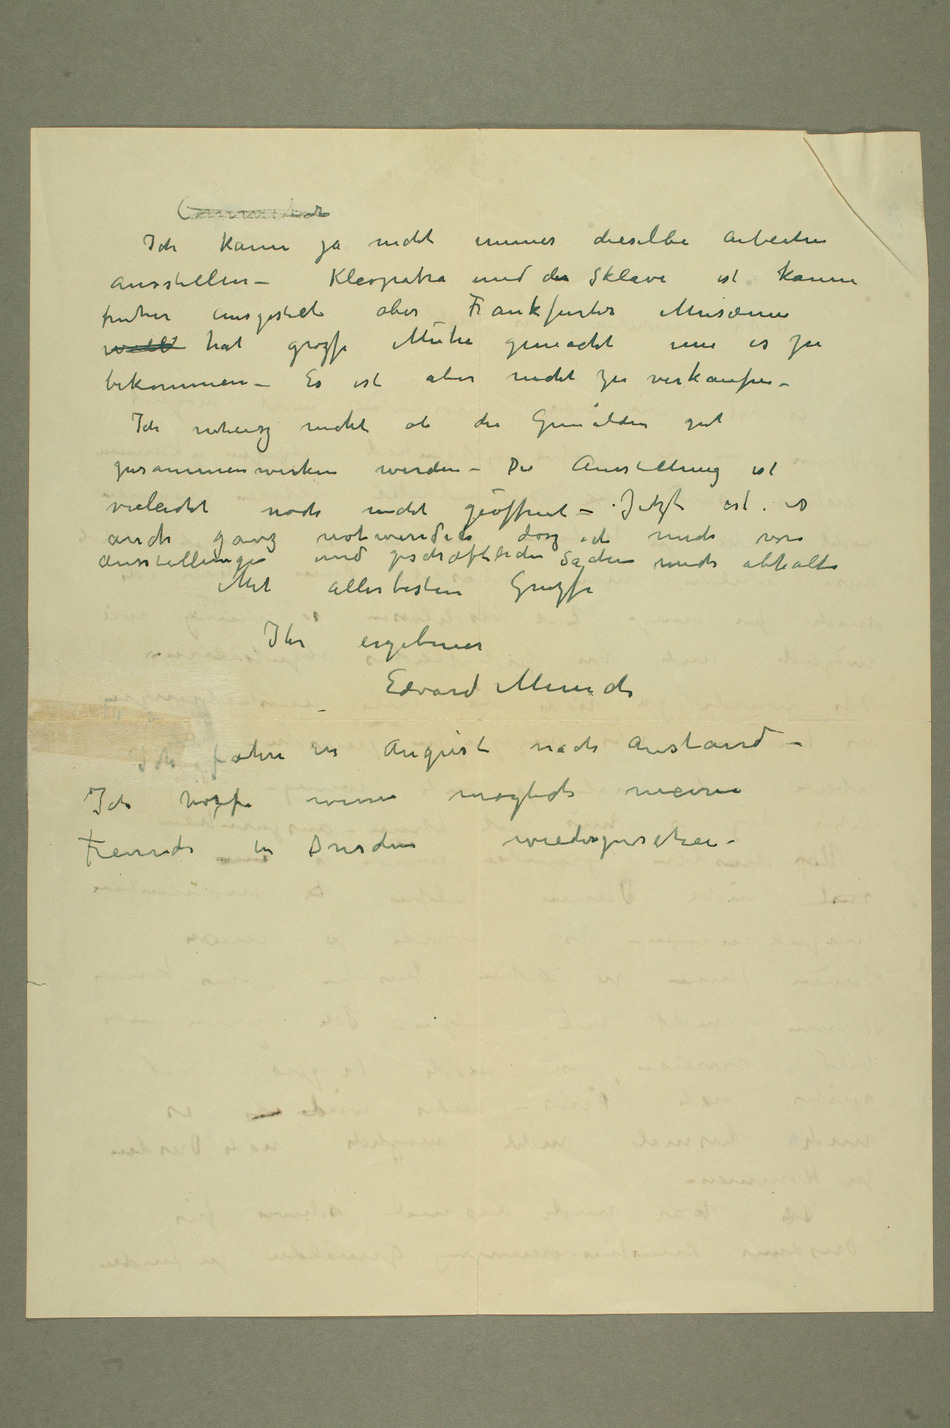 Ich kann ja nicht immer dieselbe Arbeiten
ausstellen – Kleopatra und der Sklave ist kaum
früher ausgestelt aber Frankfurter Museum
hat grozse Mühe gemacht um es zu
bekommen – Es ist aber nicht zu verkaufen –
Ich weisz nicht ob die Gemälden gut
zusammenwirken werden – Die Ausstellung ist
vieleicht noch nicht geöffnet – Jetzt ist es
auch ganz notwendich dasz ich mich von
Ausstellungen und geschäftlichen Sachen mich abhalte
Mit allerbesten Gruzse
Ihr ergebener
Edvard Munch
Ich fahre in August nach Ausland –
Ich hozfe wenn möglich meine
Freunde in Dresden wiederzusehen –